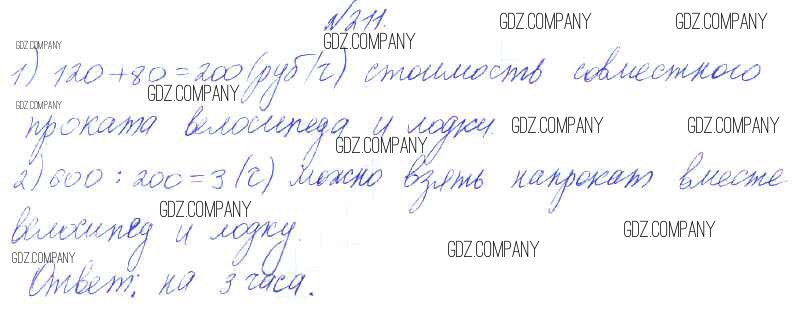 №211.
1) 120+80=200 (руб/ч) стоимость совместного
проката велосипеда и лодки.
2) 600 : 200=3 (ч) можно взять напрокат вместе
велосипед и лодку.
Ответ: на 3 часа.
GDZ.COMPANY
GDZ.COMPANY
GDZ.COMPANY
GDZ.COMPANY
GDZ.COMPANY
GDZ.COMPANY
GDZ.COMPANY
GDZ.COMPANY
GDZ.COMPANY
GDZ.COMPANY
GDZ.COMPANY
GDZ.COMPANY
GDZ.COMPANY